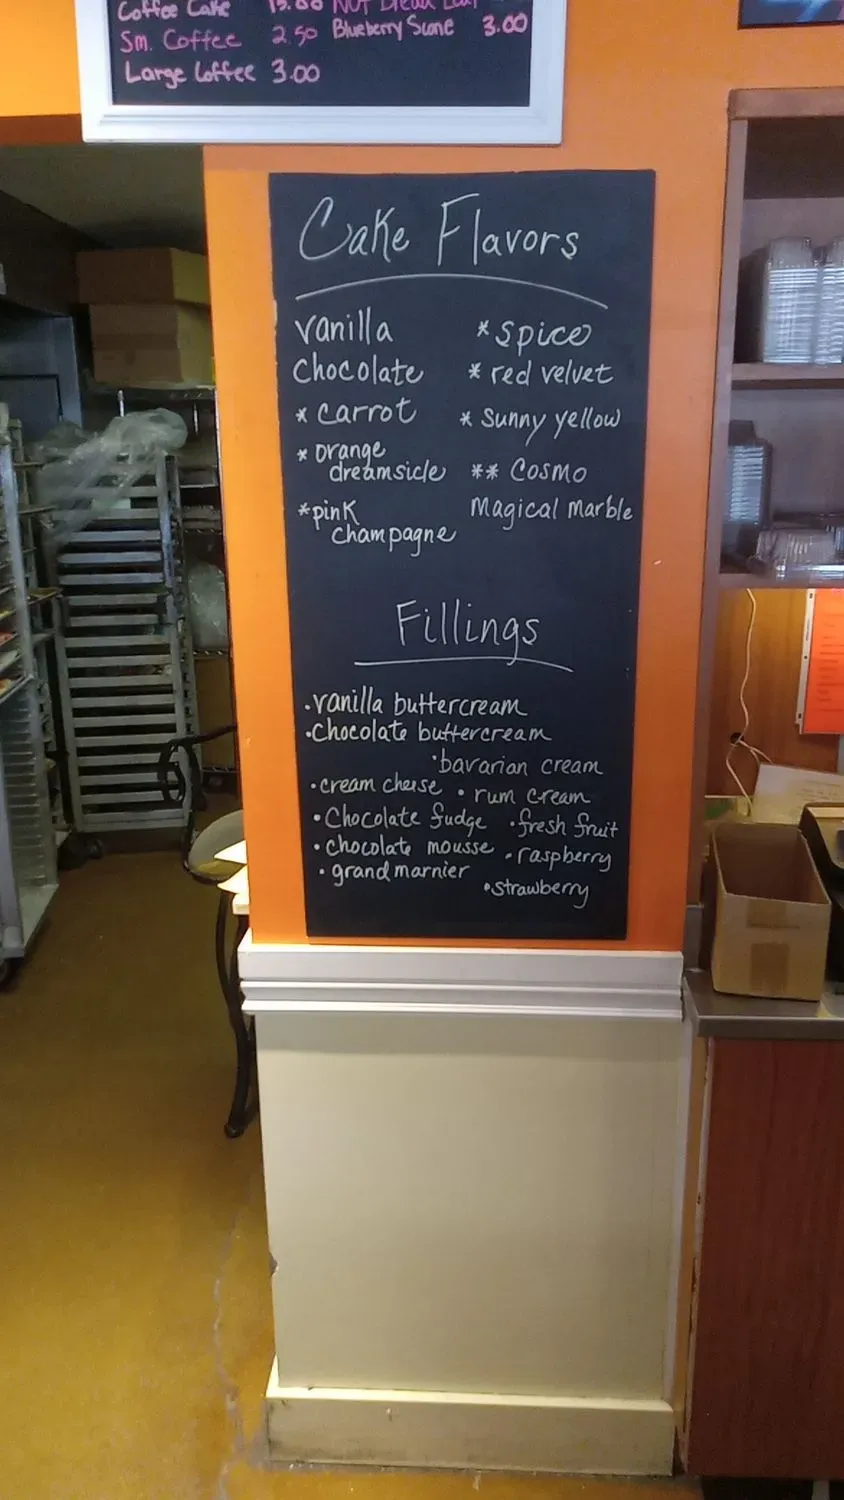 Coffee Cake
Sm. Coffee 2.50
Large Coffee 3.00
Blueberry Scone 3.00
Cake Flavors
vanilla
Chocolate
* carrot
* orange
dreamsicle
* pink
champagne
* spice
* red velvet
* sunny yellow
** Cosmo
Magical marble
Fillings
• vanilla buttercream
• chocolate buttercream
• bavarian cream
• cream cheese • rum cream
• Chocolate fudge • fresh fruit
• chocolate mousse • raspberry
• grand marnier
• strawberry